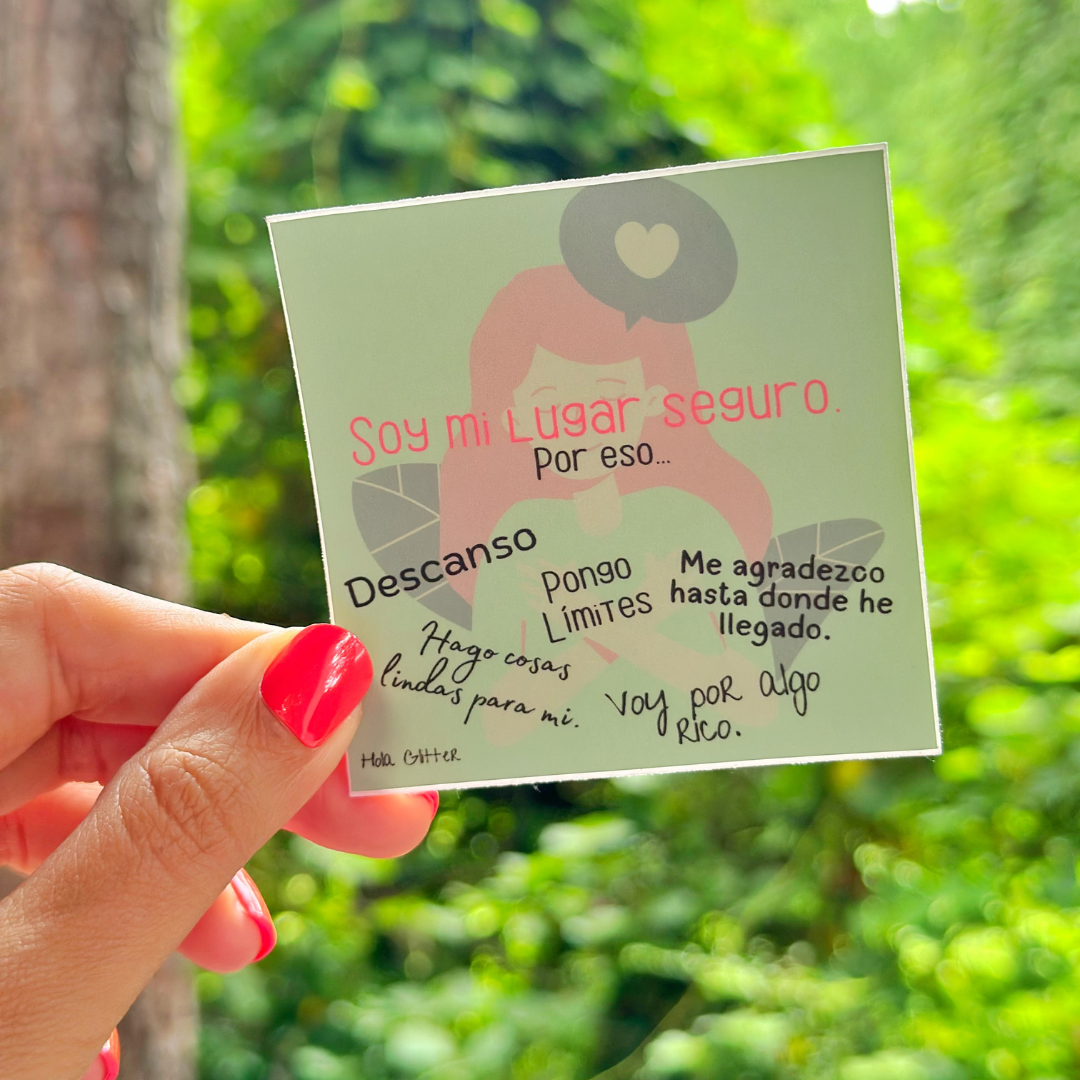 Soy mi Lugar seguro.
Por eso...
Descanso
Pongo
Límites
Me agradezco
hasta donde he
llegado.
Hago cosas
lindas para mi.
Voy por algo
Rico.
Hola Glitter